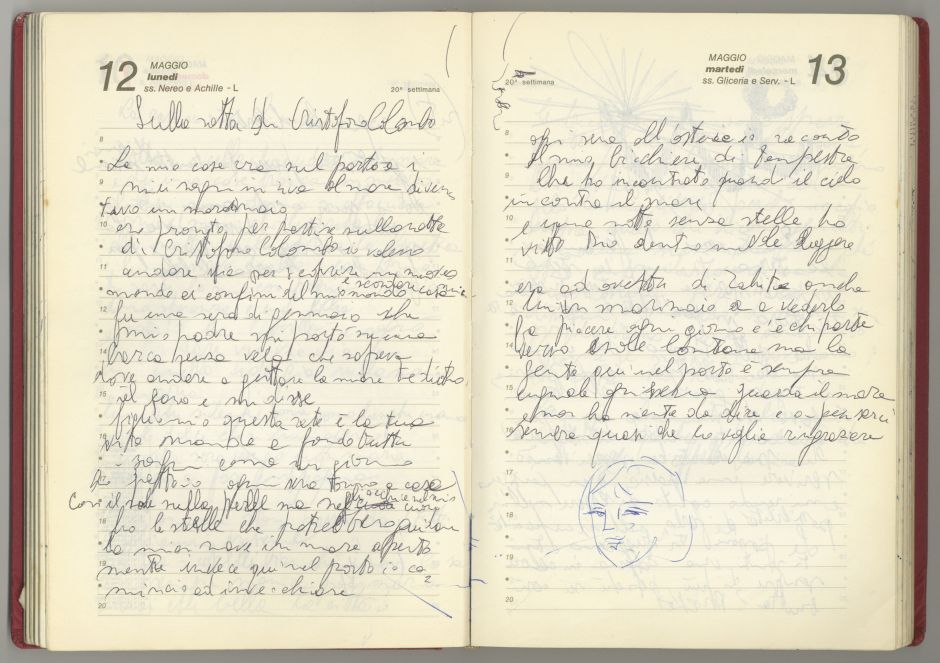 12
MAGGIO
lunedì
ss. Nereo e Achille - L
20ª settimana
Sulla rotta di Cristoforo Colombo
8
La mia casa era sul porto e i
9
miei sogni in riva al mare diven
tavo un marinaio
10
ero pronto per partire sulla rotta
di Cristoforo Colombo io volevo
11
andare via per scoprire un nuovo
e scordare
mondo ai confini del mio mondo
12
fu una sera di gennaio che
13
mio padre mi portò su una
barca senza vela che sapeva
14
dove andare a gettare la mia rete dietro
il faro e mi disse
15
figlio mio questa rete è la tua
16
vita manda a fondo tutti
i sogni come un giorno
ho fatto io ogni sera torno a casa
17
Con il sale sulla pelle ma nel cuore
18
ho le stelle che potrebbero guidare
la mia nave in mare aperto
19
mentre invece qui nel porto io co
mincio ad invecchiare
20
MAGGIO
martedì
ss. Gliceria e Serv. - L
13
20ª settimana
8
ogni sera all'osteria io racconto
al mio bicchiere di tempesta
9
che ho incontrato quando il cielo
incontra il mare
10
e una notte senza stelle ho
visto Dio dentro
11
12
anche
un marinaio a vederlo
13
fa piacere ogni giorno c'è chi parte
14
verso isole lontane ma la
gente qui nel porto è sempre
15
uguale guarda il mare
e non ha niente da dire e a pensarci
16
sembra quasi che lo voglia ringraziare
17
18
19
20